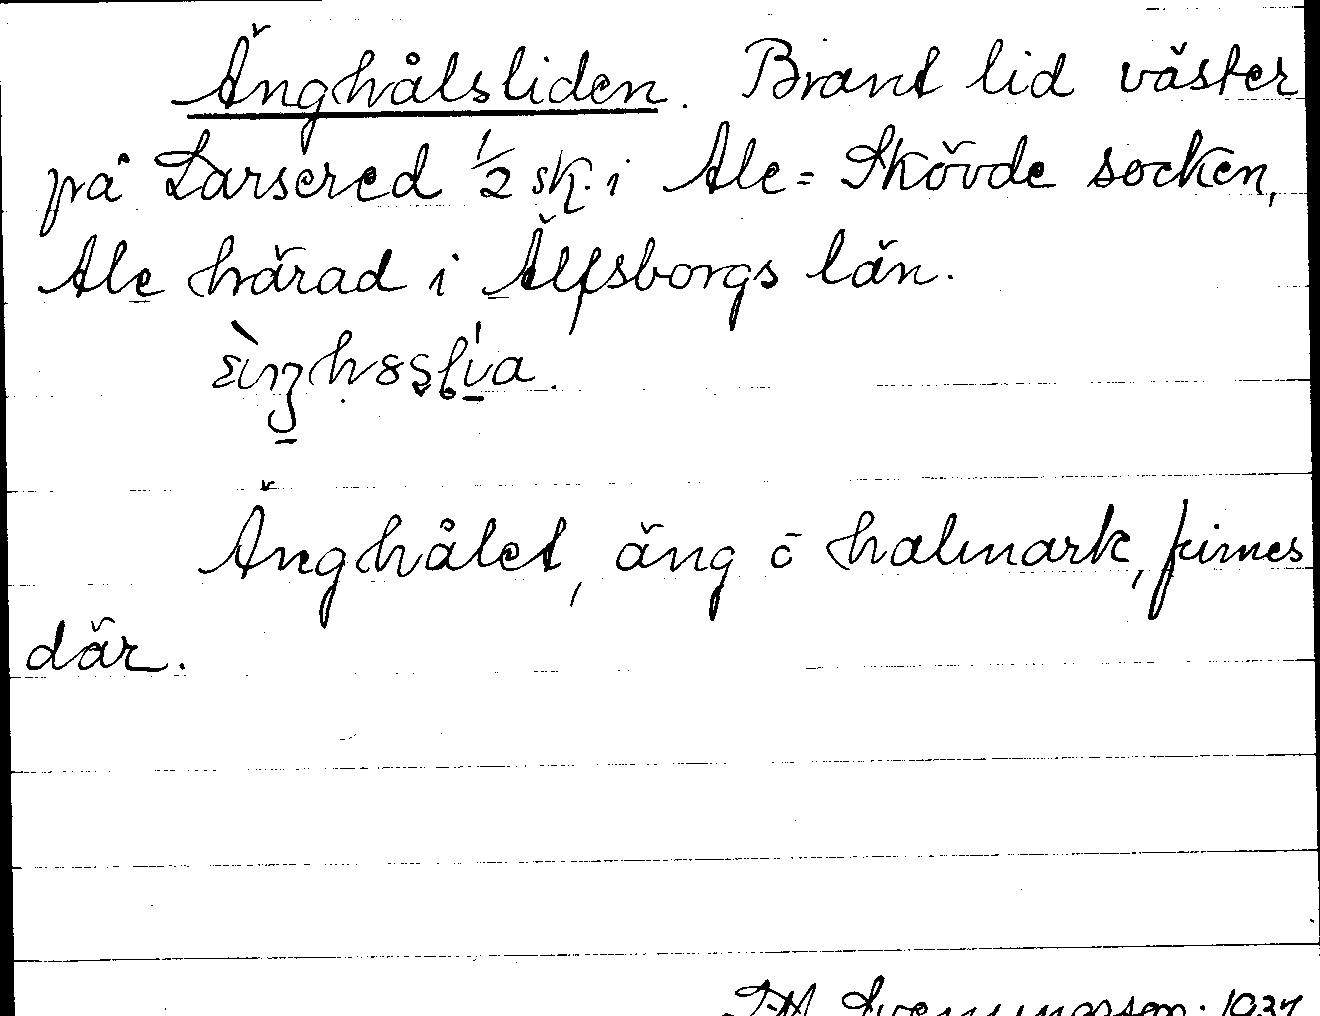 Änghålsliden. Brant lid väster
på Larsered 1/2 sk. i Ale=Skövde socken,
Ale härad i Älfsborgs län.
Änghålet, äng o halmark, finnes
där.
1937